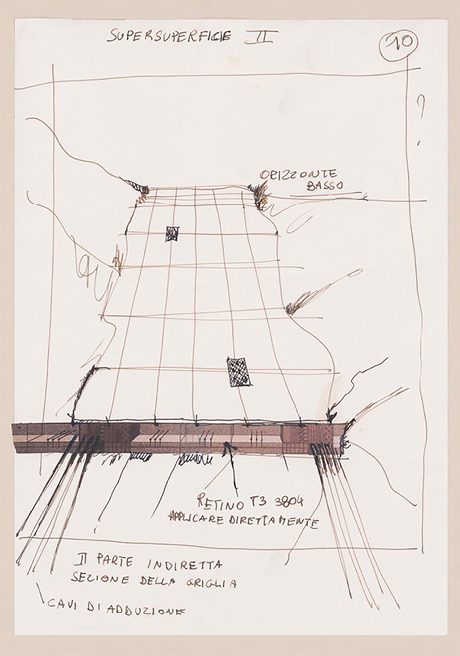 SUPERSUPERFICIE II
10
?
ORIZZONTE
BASSO
RETINO T3 3804
APPLICARE DIRETTAMENTE
II PARTE INDIRETTA
SEZIONE DELLA GRIGLIA
CAVI DI ADDUZIONE